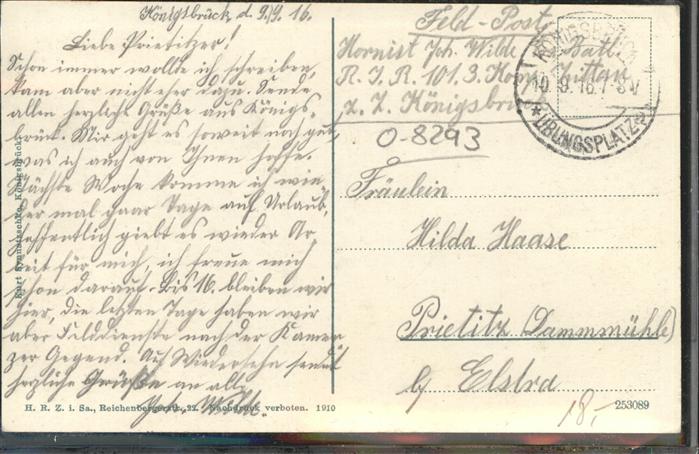 Königsbrück d. 9./9. 16.
Liebe Prietitzer!
Schon immer wollte ich schreiben,
kam aber nicht eher dazu. Sende
allen herzlichste Grüße aus Königs-
brück. Mir geht es soweit noch gut,
was ich auch von Ihnen hoffe.
Nächste Woche komme ich wie-
der mal paar Tage auf Urlaub,
hoffentlich giebt es wieder Ar-
beit für mich, ich freue mich
schon darauf. Bis 16. bleiben wir
hier, die letzten Tage haben wir
aber Felddienste nach der Kamen-
zer Gegend. Auf Wiedersehn sendet
herzliche Grüße an alle
Joh. Wilde
Feld-Post
Hornist Joh. Wilde Batl.
R. I. R. 101. 3. Komp. Zittau
z. Z. Königsbrück
KÖNIGSBRÜCK
10. 9. 16. 7-8V
*ÜBUNGSPLATZ*
0-8293
Fräulein
Hilda Haase
Prietitz (Dammmühle)
b/ Elstra
18,-
Königsbrück
H. R. Z. i. Sa., Reichenbergerstr. Nachdruck verboten. 1910
253089